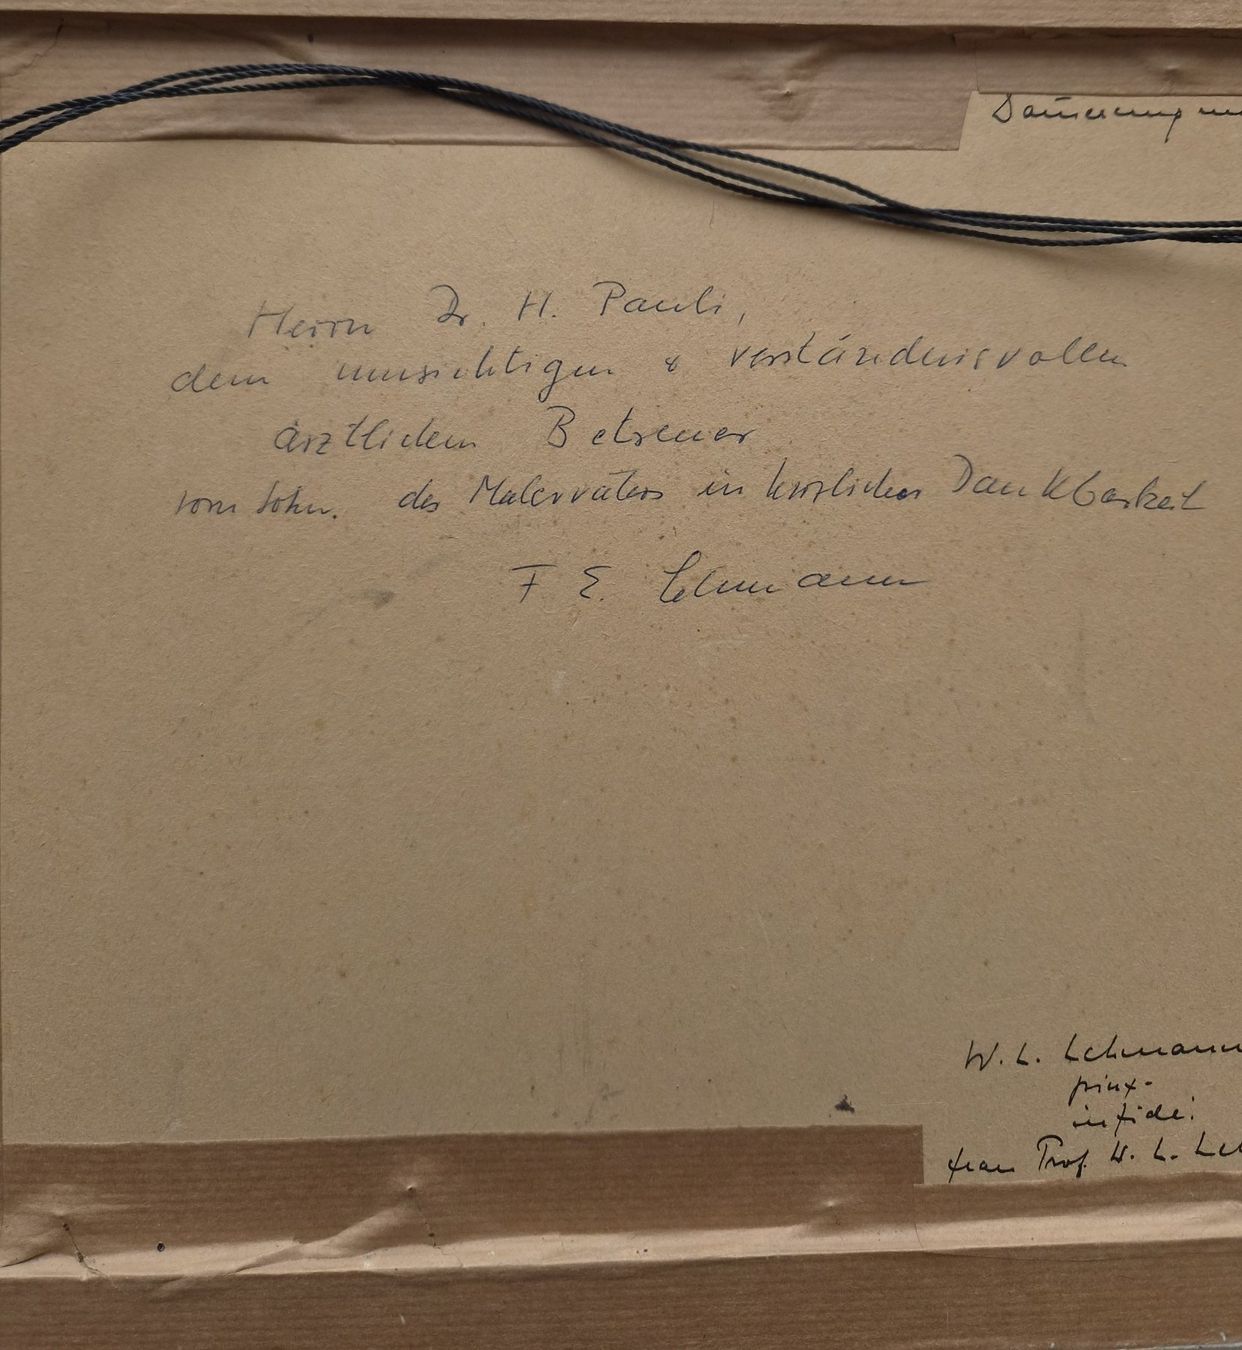 Dämmerung
Herrn Dr. H. Pauli,
dem umsichtigen & verständnisvollen
ärztlichen Betreuer
vom Sohn. des Malervaters in herzlicher Dankbarkeit
F E. Lehmann
W. L. Lehmann
pinx.
in fide:
frau Prof. W. L. Leh